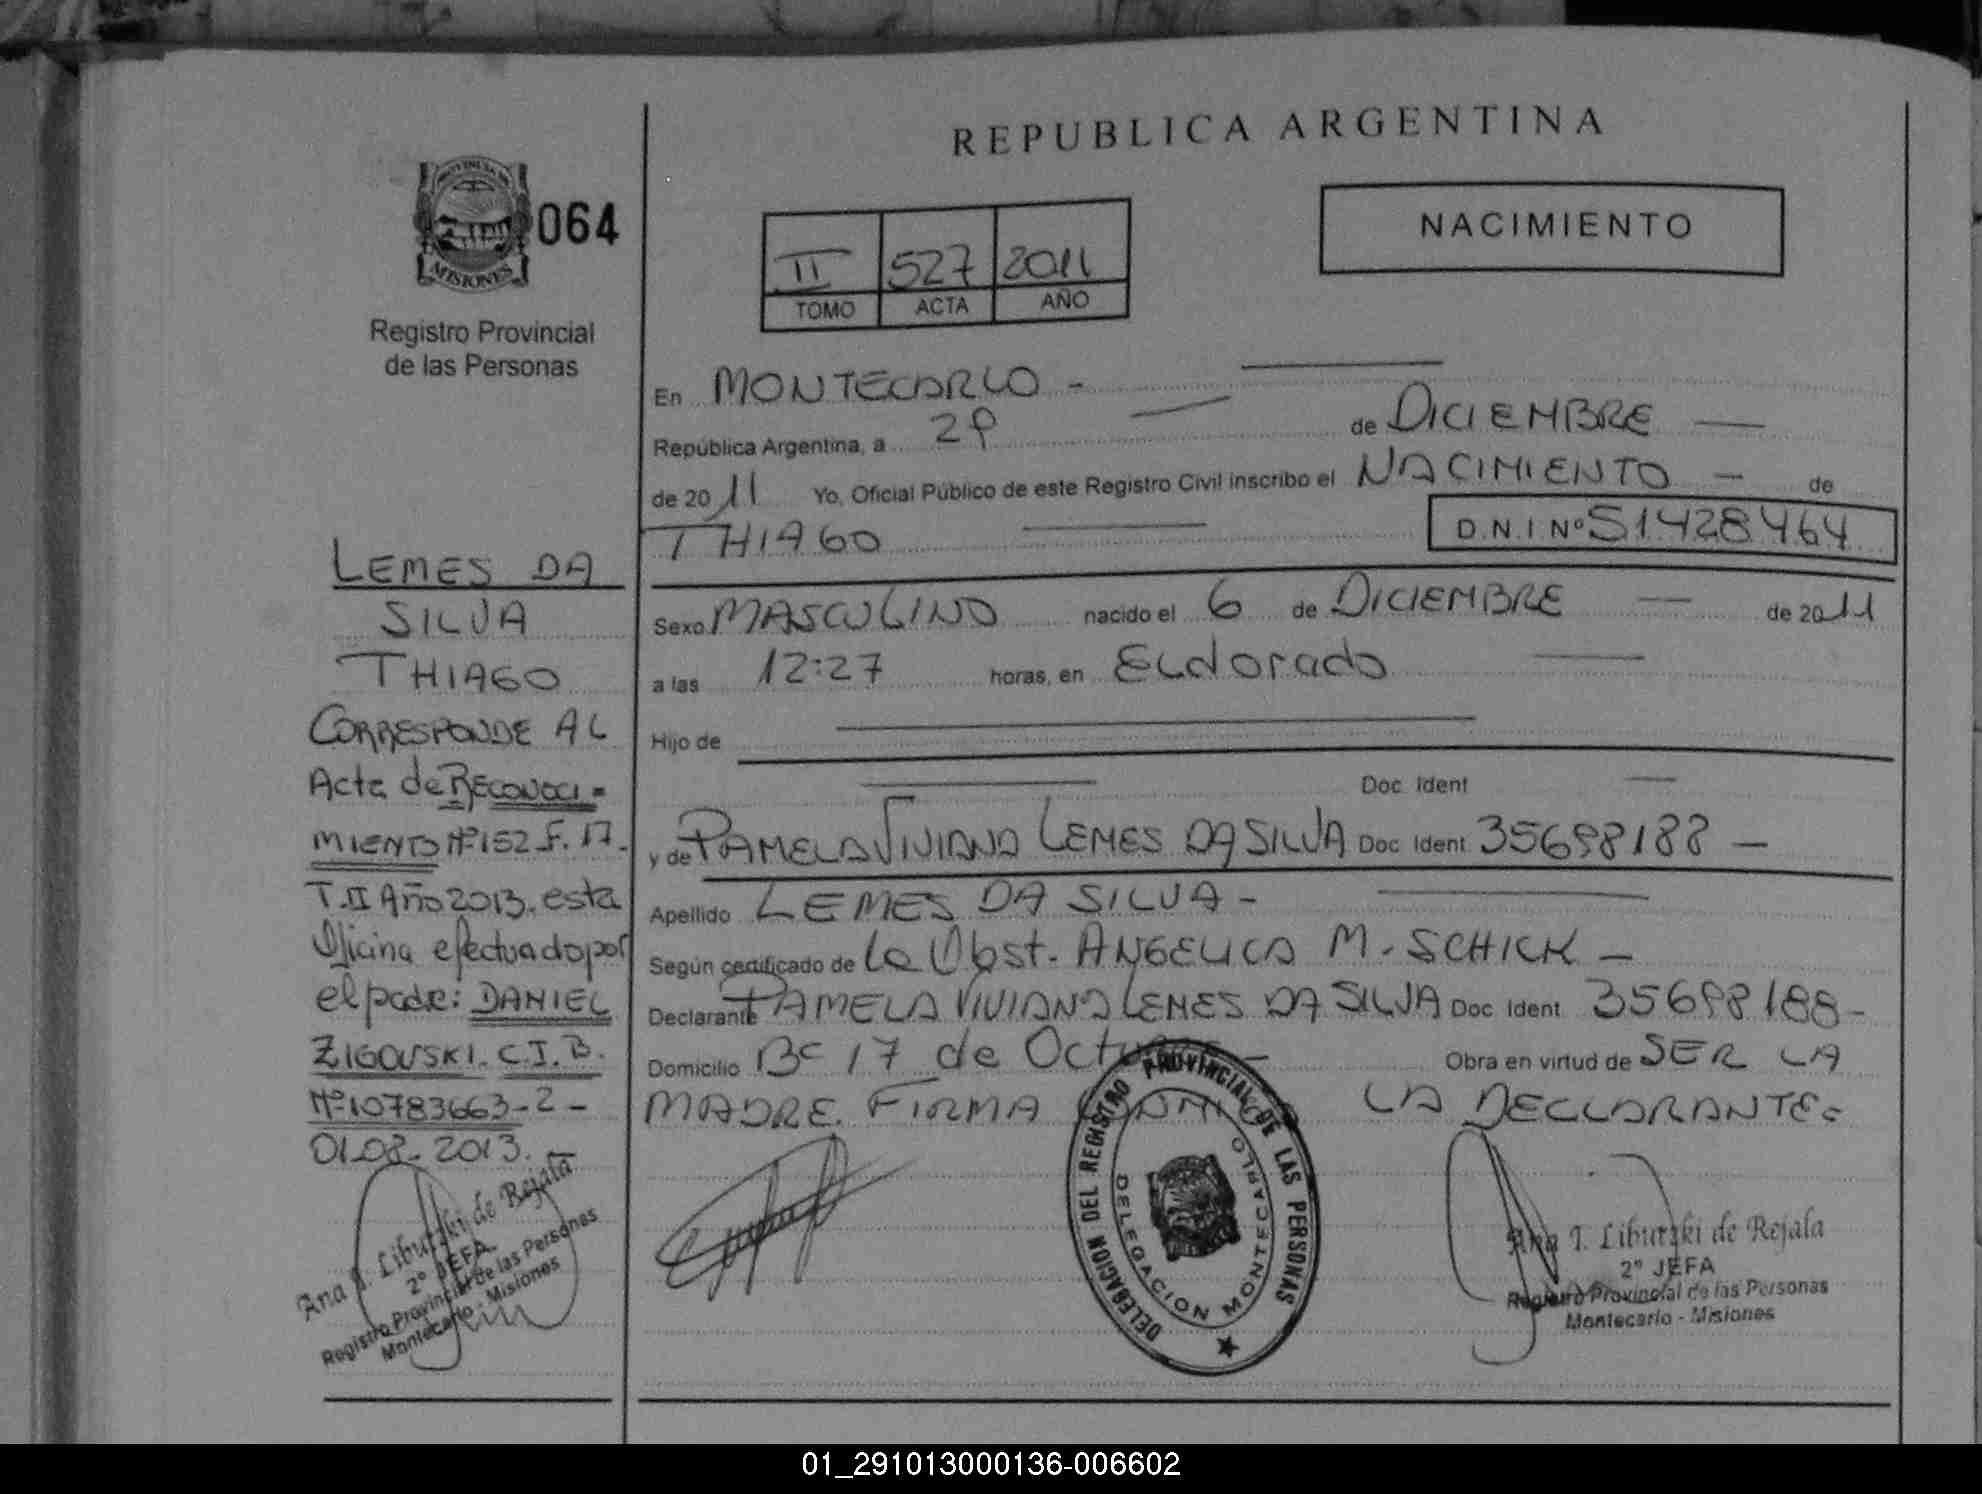 REPUBLICA ARGENTINA
PROVINCIA DE
MISIONES
064
Registro Provincial
de las Personas
NACIMIENTO
II 527 2011
TOMO ACTA AÑO
En MONTECARLO -
República Argentina, a 29 de DICIEMBRE
de 2011 Yo, Oficial Público de este Registro Civil inscribo el NACIMIENTO - de
THIAGO D.N.I Nº 51428464
Sexo MASCULINO nacido el 6 de DICIEMBRE de 2011
a las 12:27 horas, en Eldorado
Hijo de
Doc. Ident
y de PAMELA VIVIANA LEMES DA SILVA Doc Ident 35698188 -
Apellido LEMES DA SILVA -
Según certificado de la Obst. ANGELICA M. SCHICK -
Declarante PAMELA VIVIANA LEMES DA SILVA Doc Ident 35698188-
Domicilio Bº 17 de Octubre - Obra en virtud de SER LA
MADRE. FIRMA CONMIGO LA DECLARANTE=
LEMES DA
SILVA
THIAGO
CORRESPONDE AL
Acta de RECONOCI=
MIENTO Nº 152 F. 17.
T.II Año 2013. esta
Oficina efectuado por
el padre: DANIEL
ZIGOVSKI. C.I.B.
Nº 10783663-2-
01.08.2013.
Ana I. Liburzki de Rejala
2º JEFA
Registro Provincial de las Personas
Montecarlo - Misiones
DELEGACION DEL REGISTRO PROVINCIAL DE LAS PERSONAS
DELEGACION MONTECARLO
Ana I. Liburzki de Rejala
2º JEFA
Registro Provincial de las Personas
Montecarlo - Misiones
01_291013000136-006602